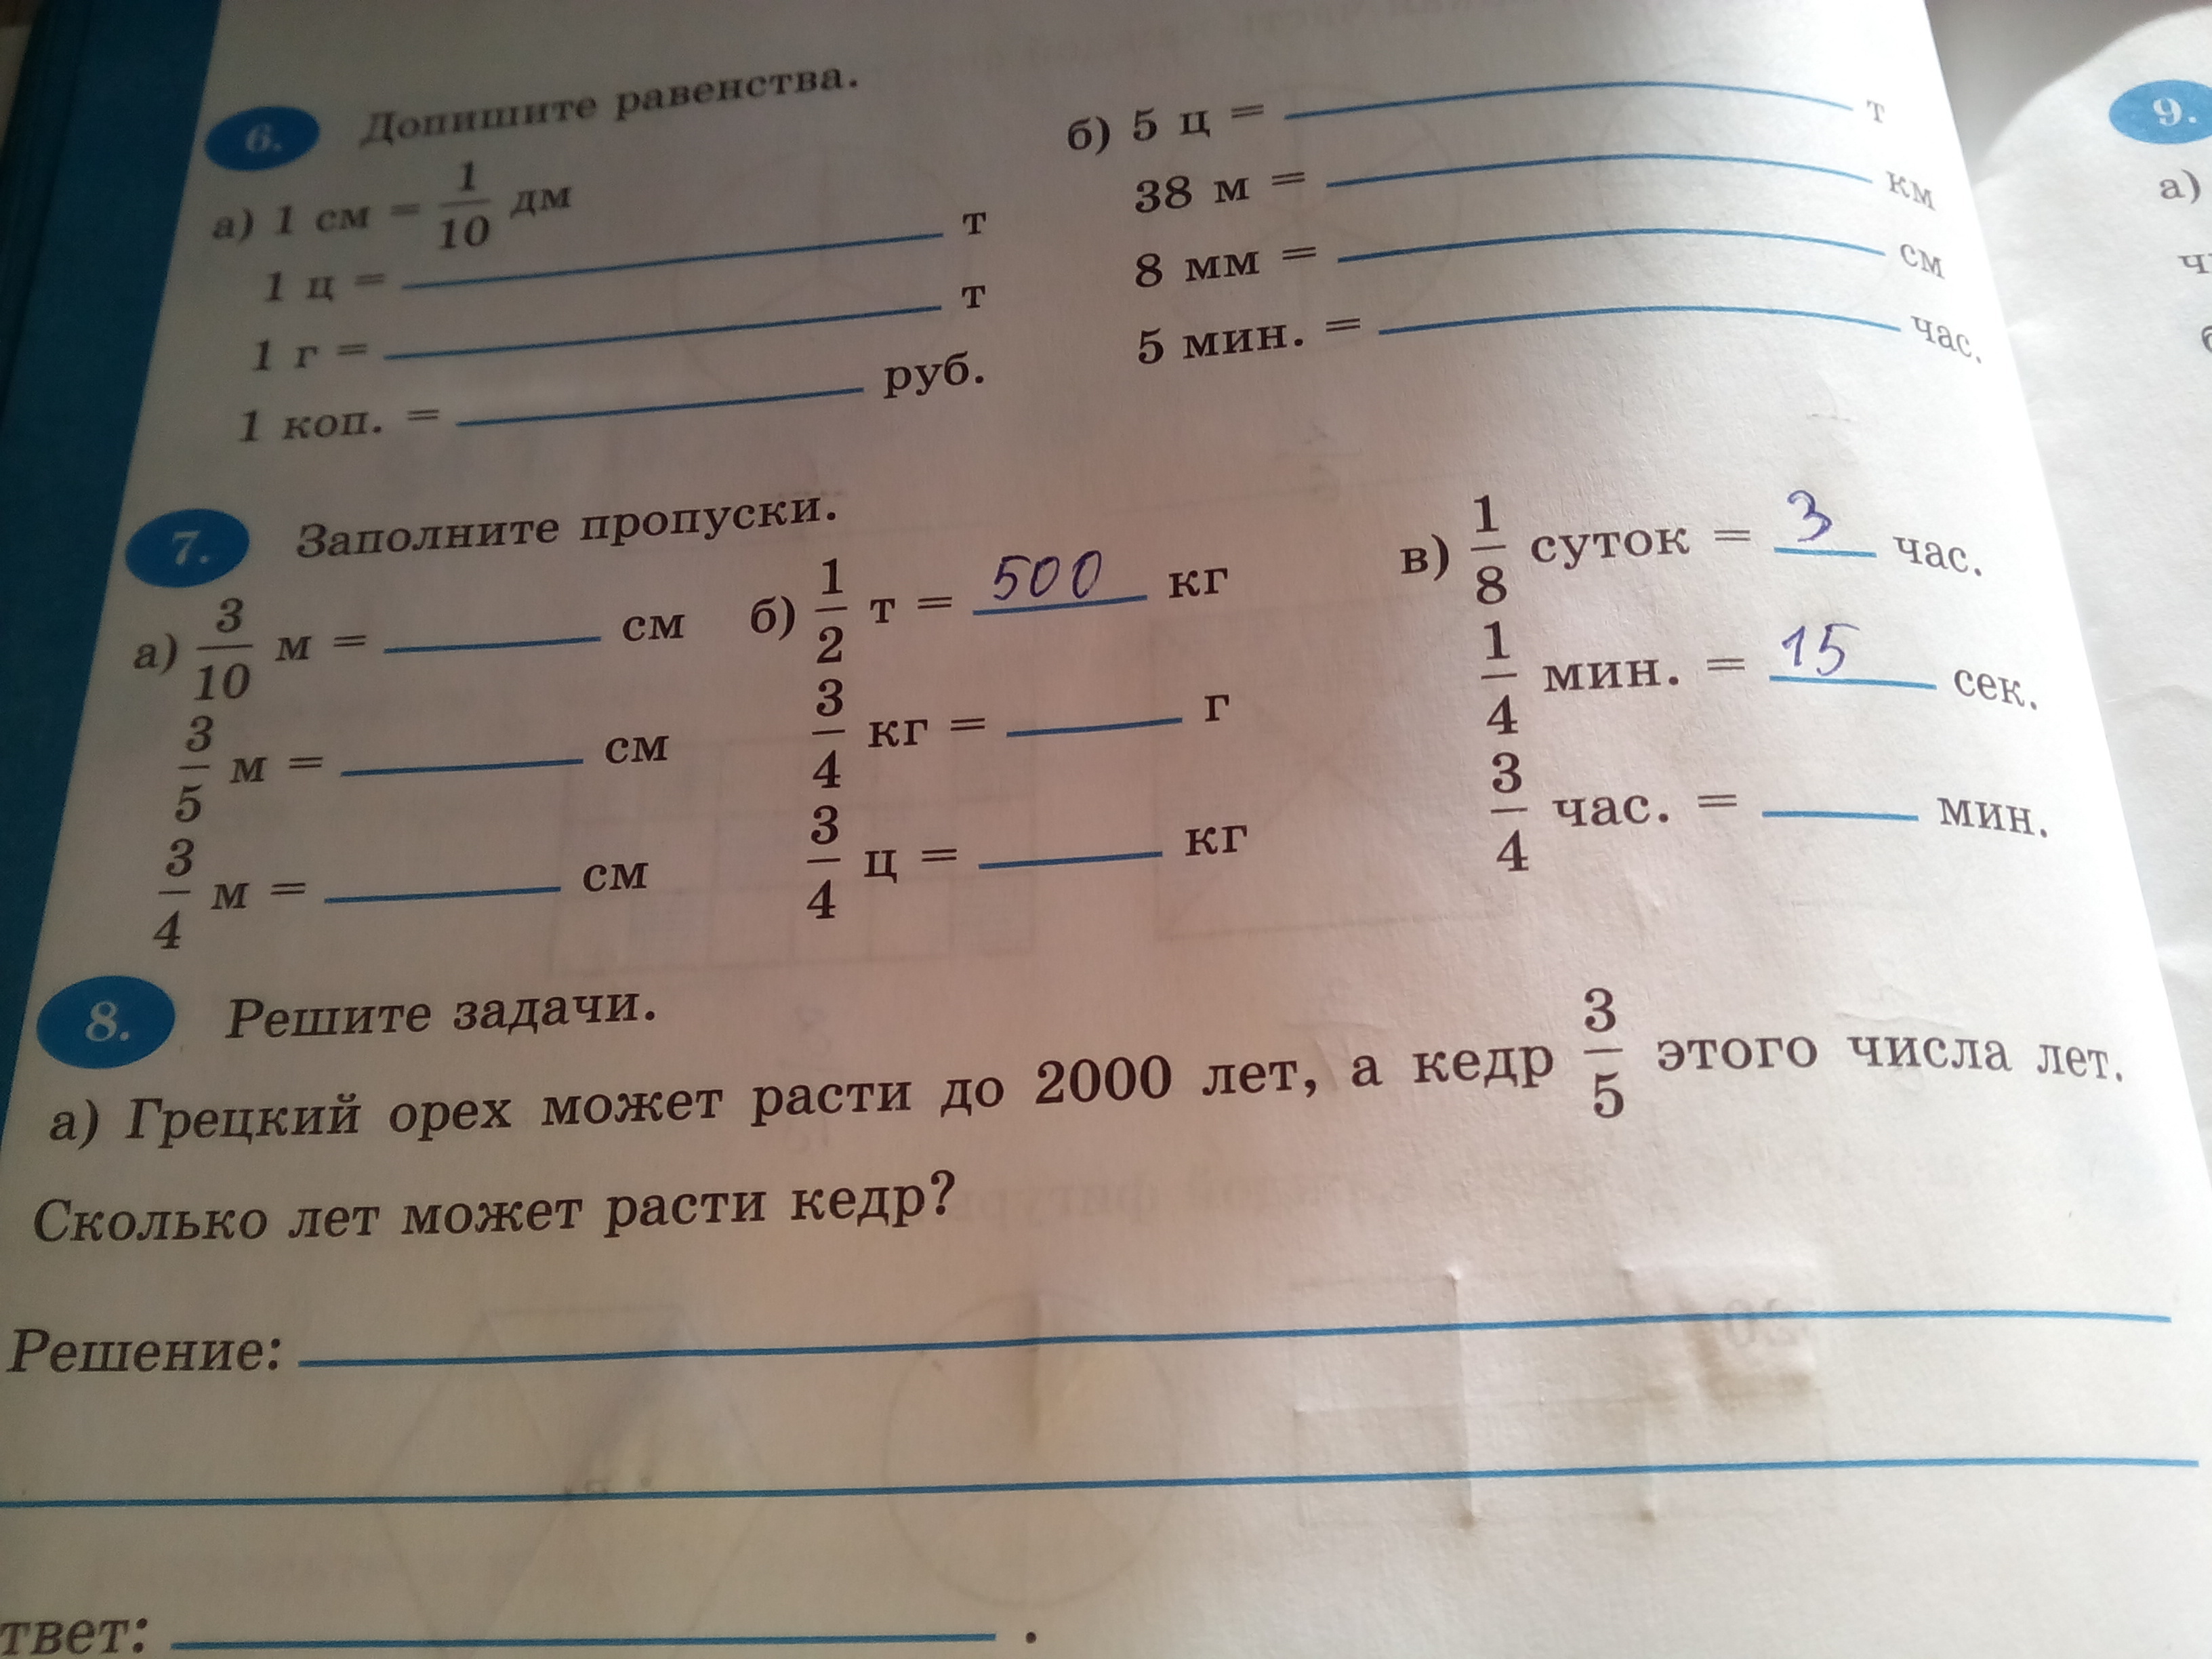 6. Допишите равенства.
а) 1 см = 1/10 дм
1 ц = ______ т
1 г = ______ т
1 коп. = ______ руб.
б) 5 ц = ______ т
38 м = ______ км
8 мм = ______ см
5 мин. = ______ час.
7. Заполните пропуски.
а) 3/10 м = ______ см
3/5 м = ______ см
3/4 м = ______ см
б) 1/2 т = 500 кг
3/4 кг = ______ г
3/4 ц = ______ кг
в) 1/8 суток = 3 час.
1/4 мин. = 15 сек.
3/4 час. = ______ мин.
8. Решите задачи.
а) Грецкий орех может расти до 2000 лет, а кедр 3/5 этого числа лет.
Сколько лет может расти кедр?
Решение:
твет: ______ .
9.
а)